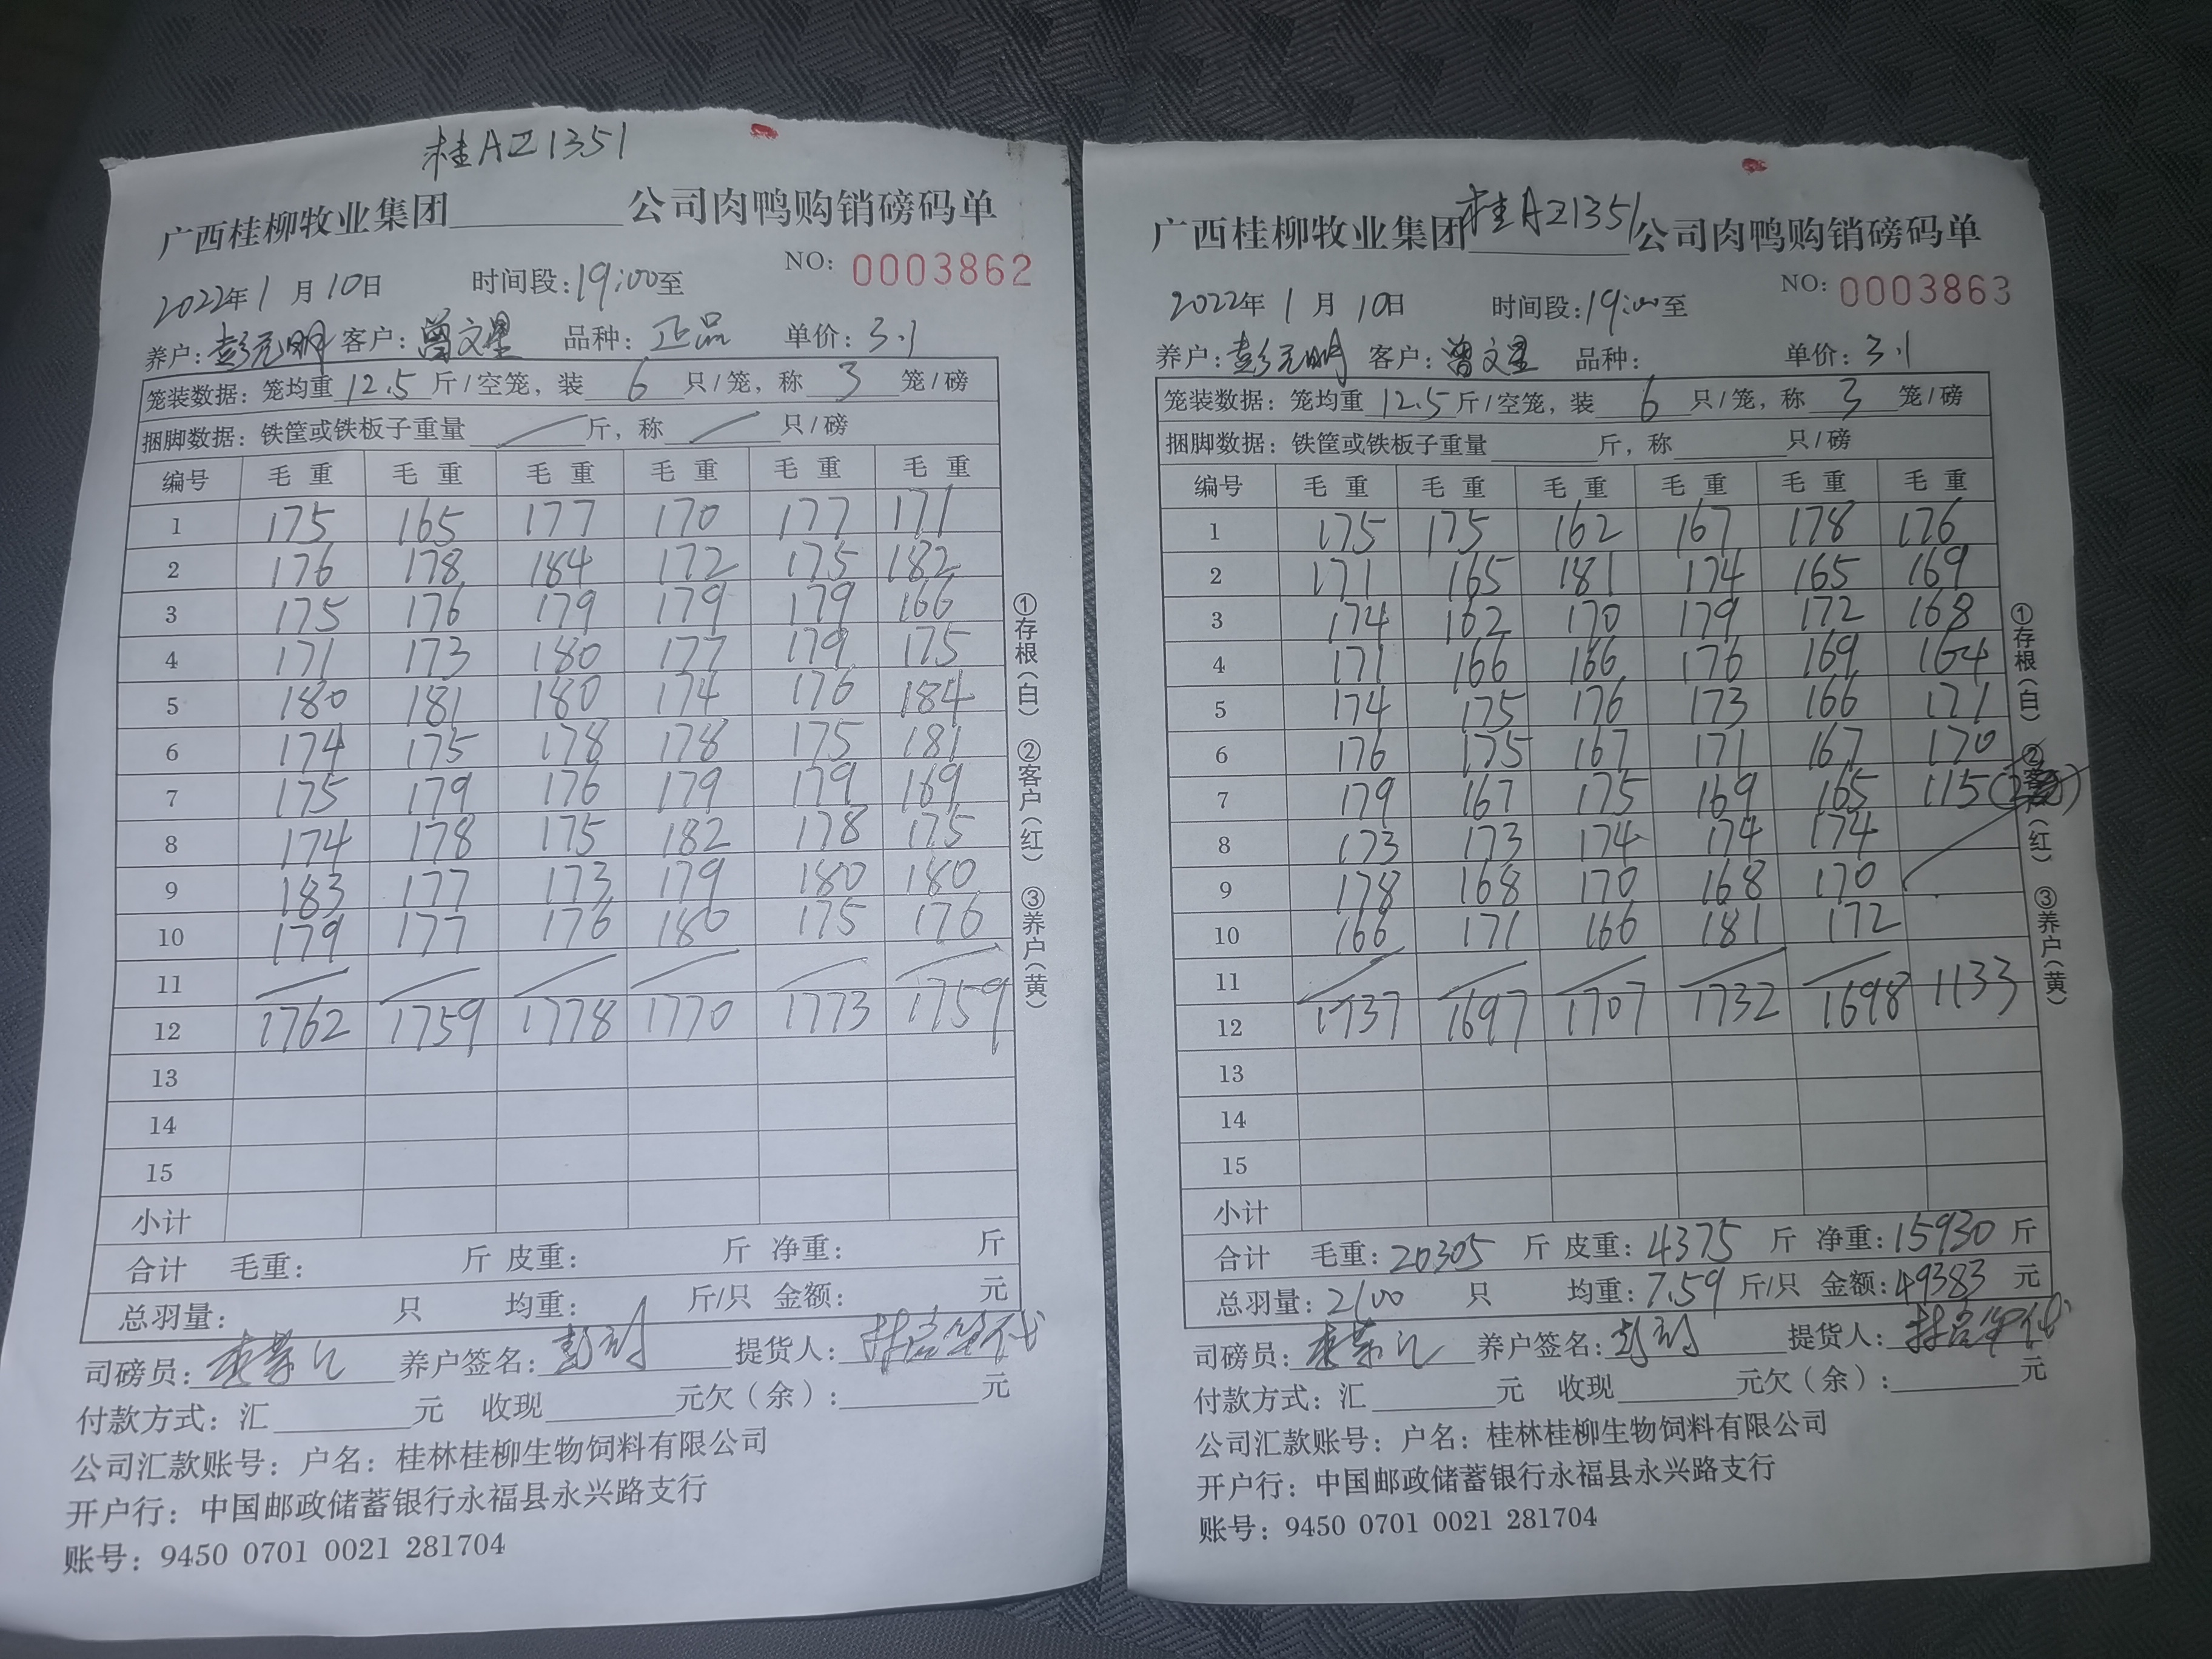 桂AZ1351
广西桂柳牧业集团 公司肉鸭购销磅码单
NO: 0003862
2022年1月10日 时间段:19:00至
养户:彭元明 客户:曾文星 品种:正品 单价:3.1
笼装数据:笼均重12.5斤/空笼,装6只/笼,称3笼/磅
捆脚数据:铁筐或铁板子重量 斤,称 只/磅
编号 毛重 毛重 毛重 毛重 毛重 毛重
1 175 165 177 170 177 171
2 176 178 184 172 175 182
3 175 176 179 179 179 166
4 171 173 180 177 179 175
5 180 181 180 174 176 184
6 174 175 178 178 175 181
7 175 179 176 179 179 169
8 174 178 175 182 178 175
9 183 177 173 179 180 180
10 179 177 176 180 175 176
11
12 1762 1759 1778 1770 1773 1759
13
14
15
小计
合计 毛重: 斤 皮重: 斤 净重: 斤
总羽量: 只 均重: 斤/只 金额: 元
司磅员: 养户签名: 提货人:
付款方式:汇 元 收现 元欠(余): 元
公司汇款账号:户名:桂林桂柳生物饲料有限公司
开户行:中国邮政储蓄银行永福县永兴路支行
账号:9450 0701 0021 281704
①存根(白) ②客户(红) ③养户(黄)
广西桂柳牧业集团桂AZ1351公司肉鸭购销磅码单
NO: 0003863
2022年1月10日 时间段:19:00至
养户:彭元明 客户:曾文星 品种: 单价:3.1
笼装数据:笼均重12.5斤/空笼,装6只/笼,称3笼/磅
捆脚数据:铁筐或铁板子重量 斤,称 只/磅
编号 毛重 毛重 毛重 毛重 毛重 毛重
1 175 175 162 167 178 176
2 171 165 181 174 165 169
3 174 162 170 179 172 168
4 171 166 166 176 169 164
5 174 175 176 173 166 171
6 176 175 167 171 167 170
7 179 167 175 169 165 115
8 173 173 174 174 174
9 178 168 170 168 170
10 166 171 166 181 172
11
12 1737 1697 1707 1732 1698 1133
13
14
15
小计
合计 毛重:20305 斤 皮重:4375 斤 净重:15930 斤
总羽量:2100 只 均重:7.59 斤/只 金额:49383 元
司磅员: 养户签名: 提货人:
付款方式:汇 元 收现 元欠(余): 元
公司汇款账号:户名:桂林桂柳生物饲料有限公司
开户行:中国邮政储蓄银行永福县永兴路支行
账号:9450 0701 0021 281704
①存根(白) ②客户(红) ③养户(黄)